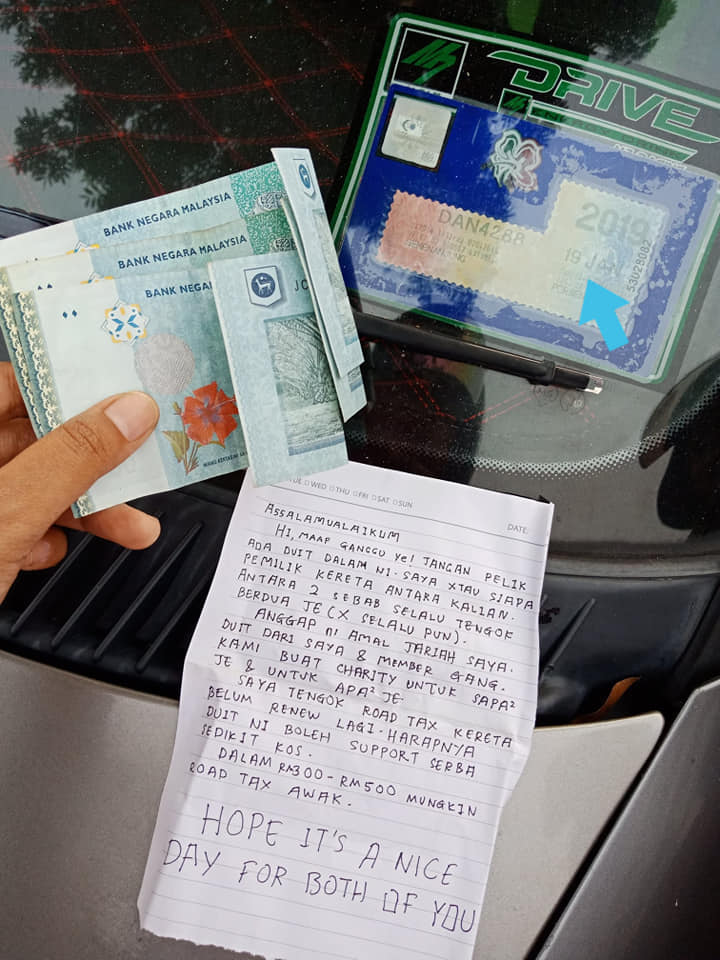 DRIVE
BANK NEGARA MALAYSIA
BANK NEGARA MALAYSIA
BANK NEGA
DAN4288
19 JAN
WED THU FRI SAT SUN
DATE:
ASSALAMUALAIKUM
HI, MAAP GANGGU YE! JANGAN PELIK
ADA DUIT DALAM NI. SAYA XTAU SIAPA
PEMILIK KERETA ANTARA KALIAN.
ANTARA 2 SEBAB SELALU TENGOK
BERDUA JE (X SELALU PUN).
ANGGAP NI AMAL JARIAH SAYA.
DUIT DARI SAYA & MEMBER GANG.
KAMI BUAT CHARITY UNTUK SAPA²
JE & UNTUK APA² JE.
SAYA TENGOK ROAD TAX KERETA
BELUM RENEW LAGI. HARAPNYA
DUIT NI BOLEH SUPPORT SERBA
SEDIKIT KOS.
DALAM RM300 - RM500 MUNGKIN
ROAD TAX AWAK.
HOPE IT'S A NICE
DAY FOR BOTH OF YOU